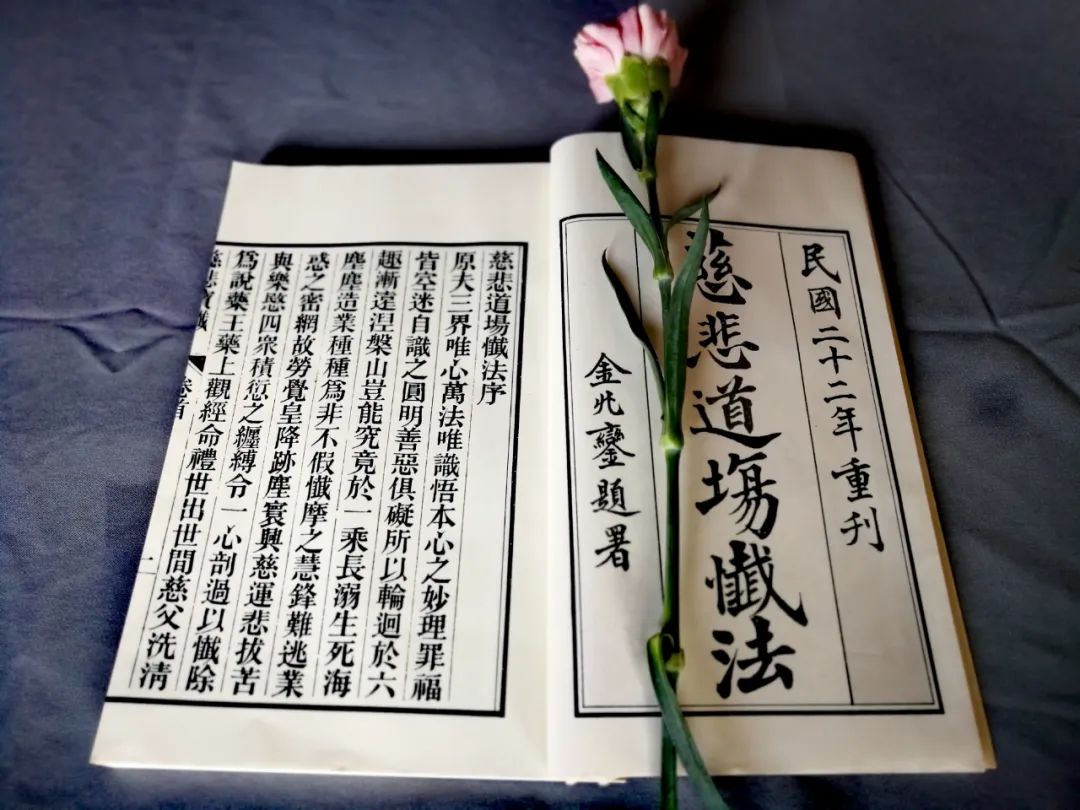 民國二十二年重刊
慈悲道場懺法
金兆鑾題署
慈悲道場懺法序
原夫三界唯心萬法唯識悟本心之妙理罪福
皆空迷自識之圓明善惡俱礙所以輪迴於六
趣漸遠涅槃山豈能究竟於一乘長溺生死海
塵塵造業種種爲非不假懺摩之慧鋒難逃業
惑之密網故勞覺皇降跡塵寰興慈運悲拔苦
與樂愍四衆積愆之纏縛令一心剖過以懺除
爲說藥王藥上觀經命禮世出世間慈父洗清
慈悲寶懺
卷首
一